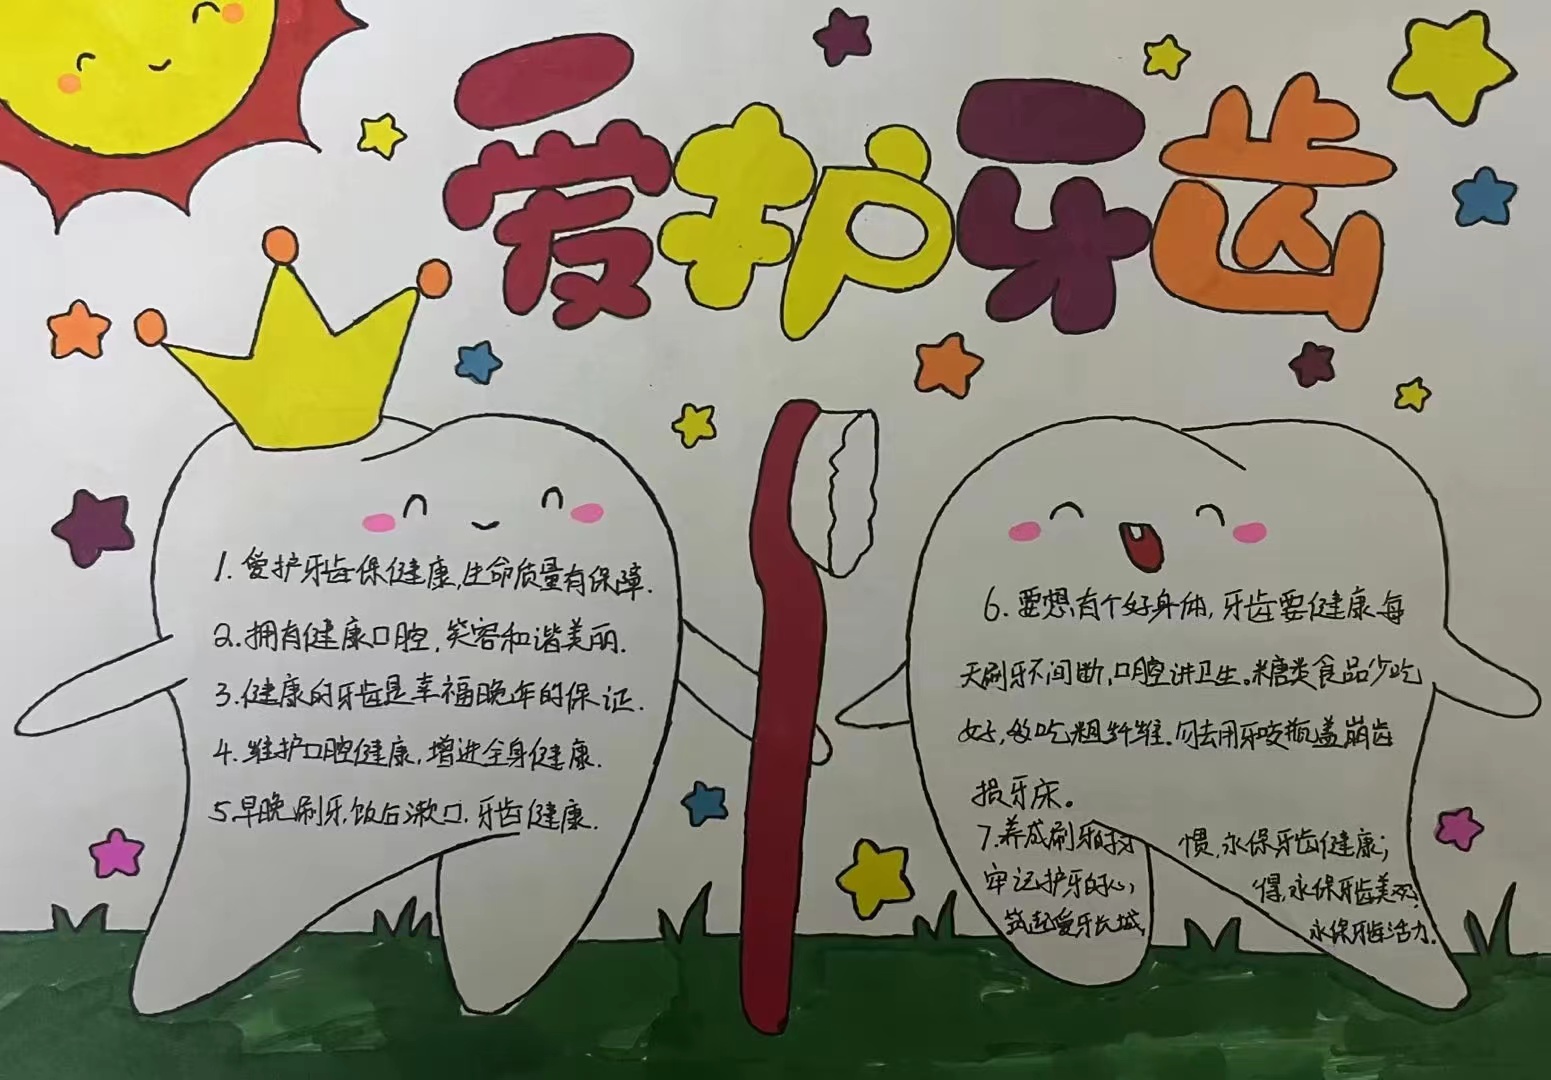 爱护牙齿
1.爱护牙齿保健康,生命质量有保障.
2.拥有健康口腔,笑容和谐美丽.
3.健康的牙齿是幸福晚年的保证.
4.维护口腔健康,增进全身健康.
5.早晚刷牙,饭后漱口.牙齿健康.
6.要想有个好身体,牙齿要健康.每
天刷牙不间断,口腔讲卫生。糖类食品少吃
好,多吃粗纤维.勿去用牙咬瓶盖崩齿
损牙床。
7.养成刷牙的好 惯,永保牙齿健康;
牢记护牙的心, 得,永保牙齿美观;
筑起爱牙长城, 永保牙齿活力.